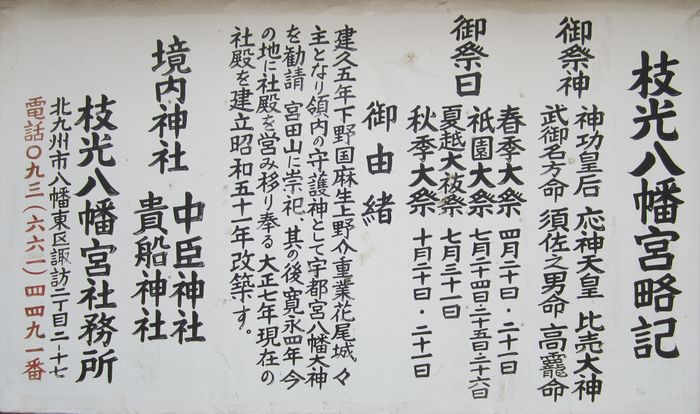 枝光八幡宮略記
御祭神
神功皇后 応神天皇 比売大神
武御名方命 須佐之男命 高龗命
御祭日
春季大祭 四月二十日・二十一日
祇園大祭 七月二十四日二十五日二十六日
夏越大祓祭 七月三十一日
秋季大祭 十月二十日・二十一日
御由緒
建久五年下野国麻生上野介重業花尾城々
主となり領内の守護神として宇都宮八幡大神
を勧請 宮田山に崇祀、其の後寛永四年今
の地に社殿を営み移り奉る 大正七年現在の
社殿を建立昭和五十一年改築す。
境内神社
中臣神社
貴船神社
枝光八幡宮社務所
北九州市八幡東区諏訪二丁目二十七
電話〇九三(六六一)四四九一番